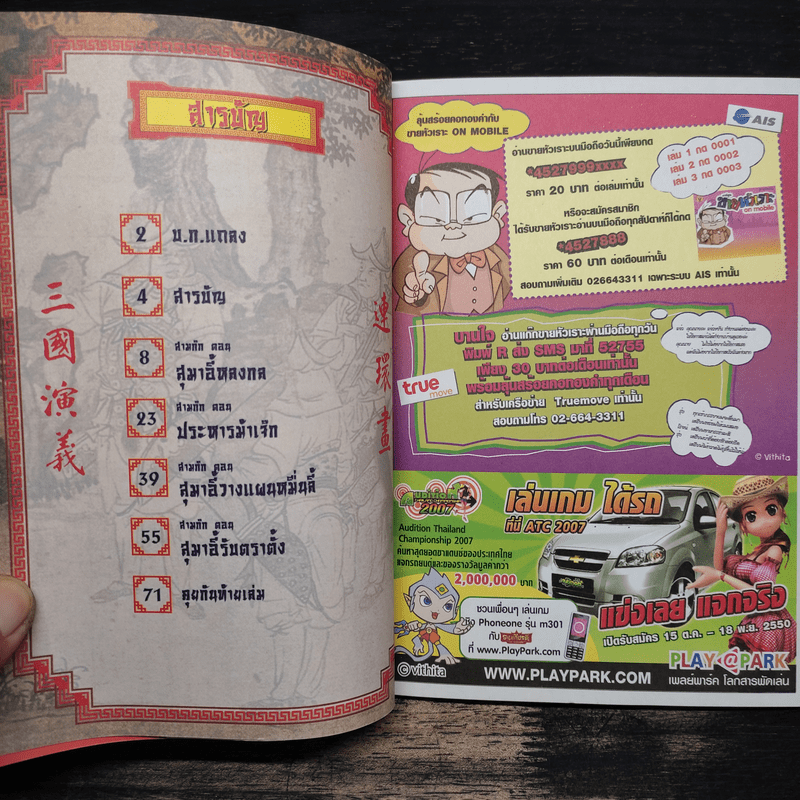 สารบัญ
2 บ.ก.แถลง
4 สารบัญ
สามก๊ก ตอน
8 สุมาอี้หลงกล
สามก๊ก ตอน
23 ประหารม้าเจ๊ก
สามก๊ก ตอน
39 สุมาอี้วางแผนหมื่นลี้
สามก๊ก ตอน
55 สุมาอี้รับตราตั้ง
71 คุยกันท้ายเล่ม
三國演義
連環畫
ลุ้นสร้อยคอทองคำกับ
ขายหัวเราะ ON MOBILE
AIS
อ่านขายหัวเราะบนมือถือวันนี้เพียงกด
*4527999xxxx
ราคา 20 บาท ต่อเล่มเท่านั้น
เล่ม 1 กด 0001
เล่ม 2 กด 0002
เล่ม 3 กด 0003
หรือจะสมัครสมาชิก
ได้รับขายหัวเราะอ่านบนมือถือทุกสัปดาห์ก็ได้กด
*4527988
ราคา 60 บาท ต่อเดือนเท่านั้น
สอบถามเพิ่มเติม 026643311 เฉพาะระบบ AIS เท่านั้น
ขายหัวเราะ
on mobile
บานใจ อ่านแก๊กขายหัวเราะผ่านมือถือทุกวัน
พิมพ์ R ส่ง SMS มาที่ 52755
เพียง 30 บาทต่อเดือนเท่านั้น
พร้อมลุ้นสร้อยคอทองคำทุกเดือน
สำหรับเครือข่าย Truemove เท่านั้น
สอบถามโทร 02-664-3311
true
move
© Vithita
2007
Audition Thailand
Championship 2007
ค้นหาสุดยอดขาแดนซ์ของประเทศไทย
แจกรถยนต์และของรางวัลมูลค่ากว่า
2,000,000 บาท
เล่นเกม ได้รถ
ที่นี่ ATC 2007
ชวนเพื่อนๆ เล่นเกม
ชิง Phoneone รุ่น m301
กับ
ที่ www.PlayPark.com
แข่งเลย แจกจริง
เปิดรับสมัคร 15 ต.ค. - 18 พ.ย. 2550
© vithita
WWW.PLAYPARK.COM
PLAY@PARK
เพลย์พาร์ค โลกสารพัดเล่น